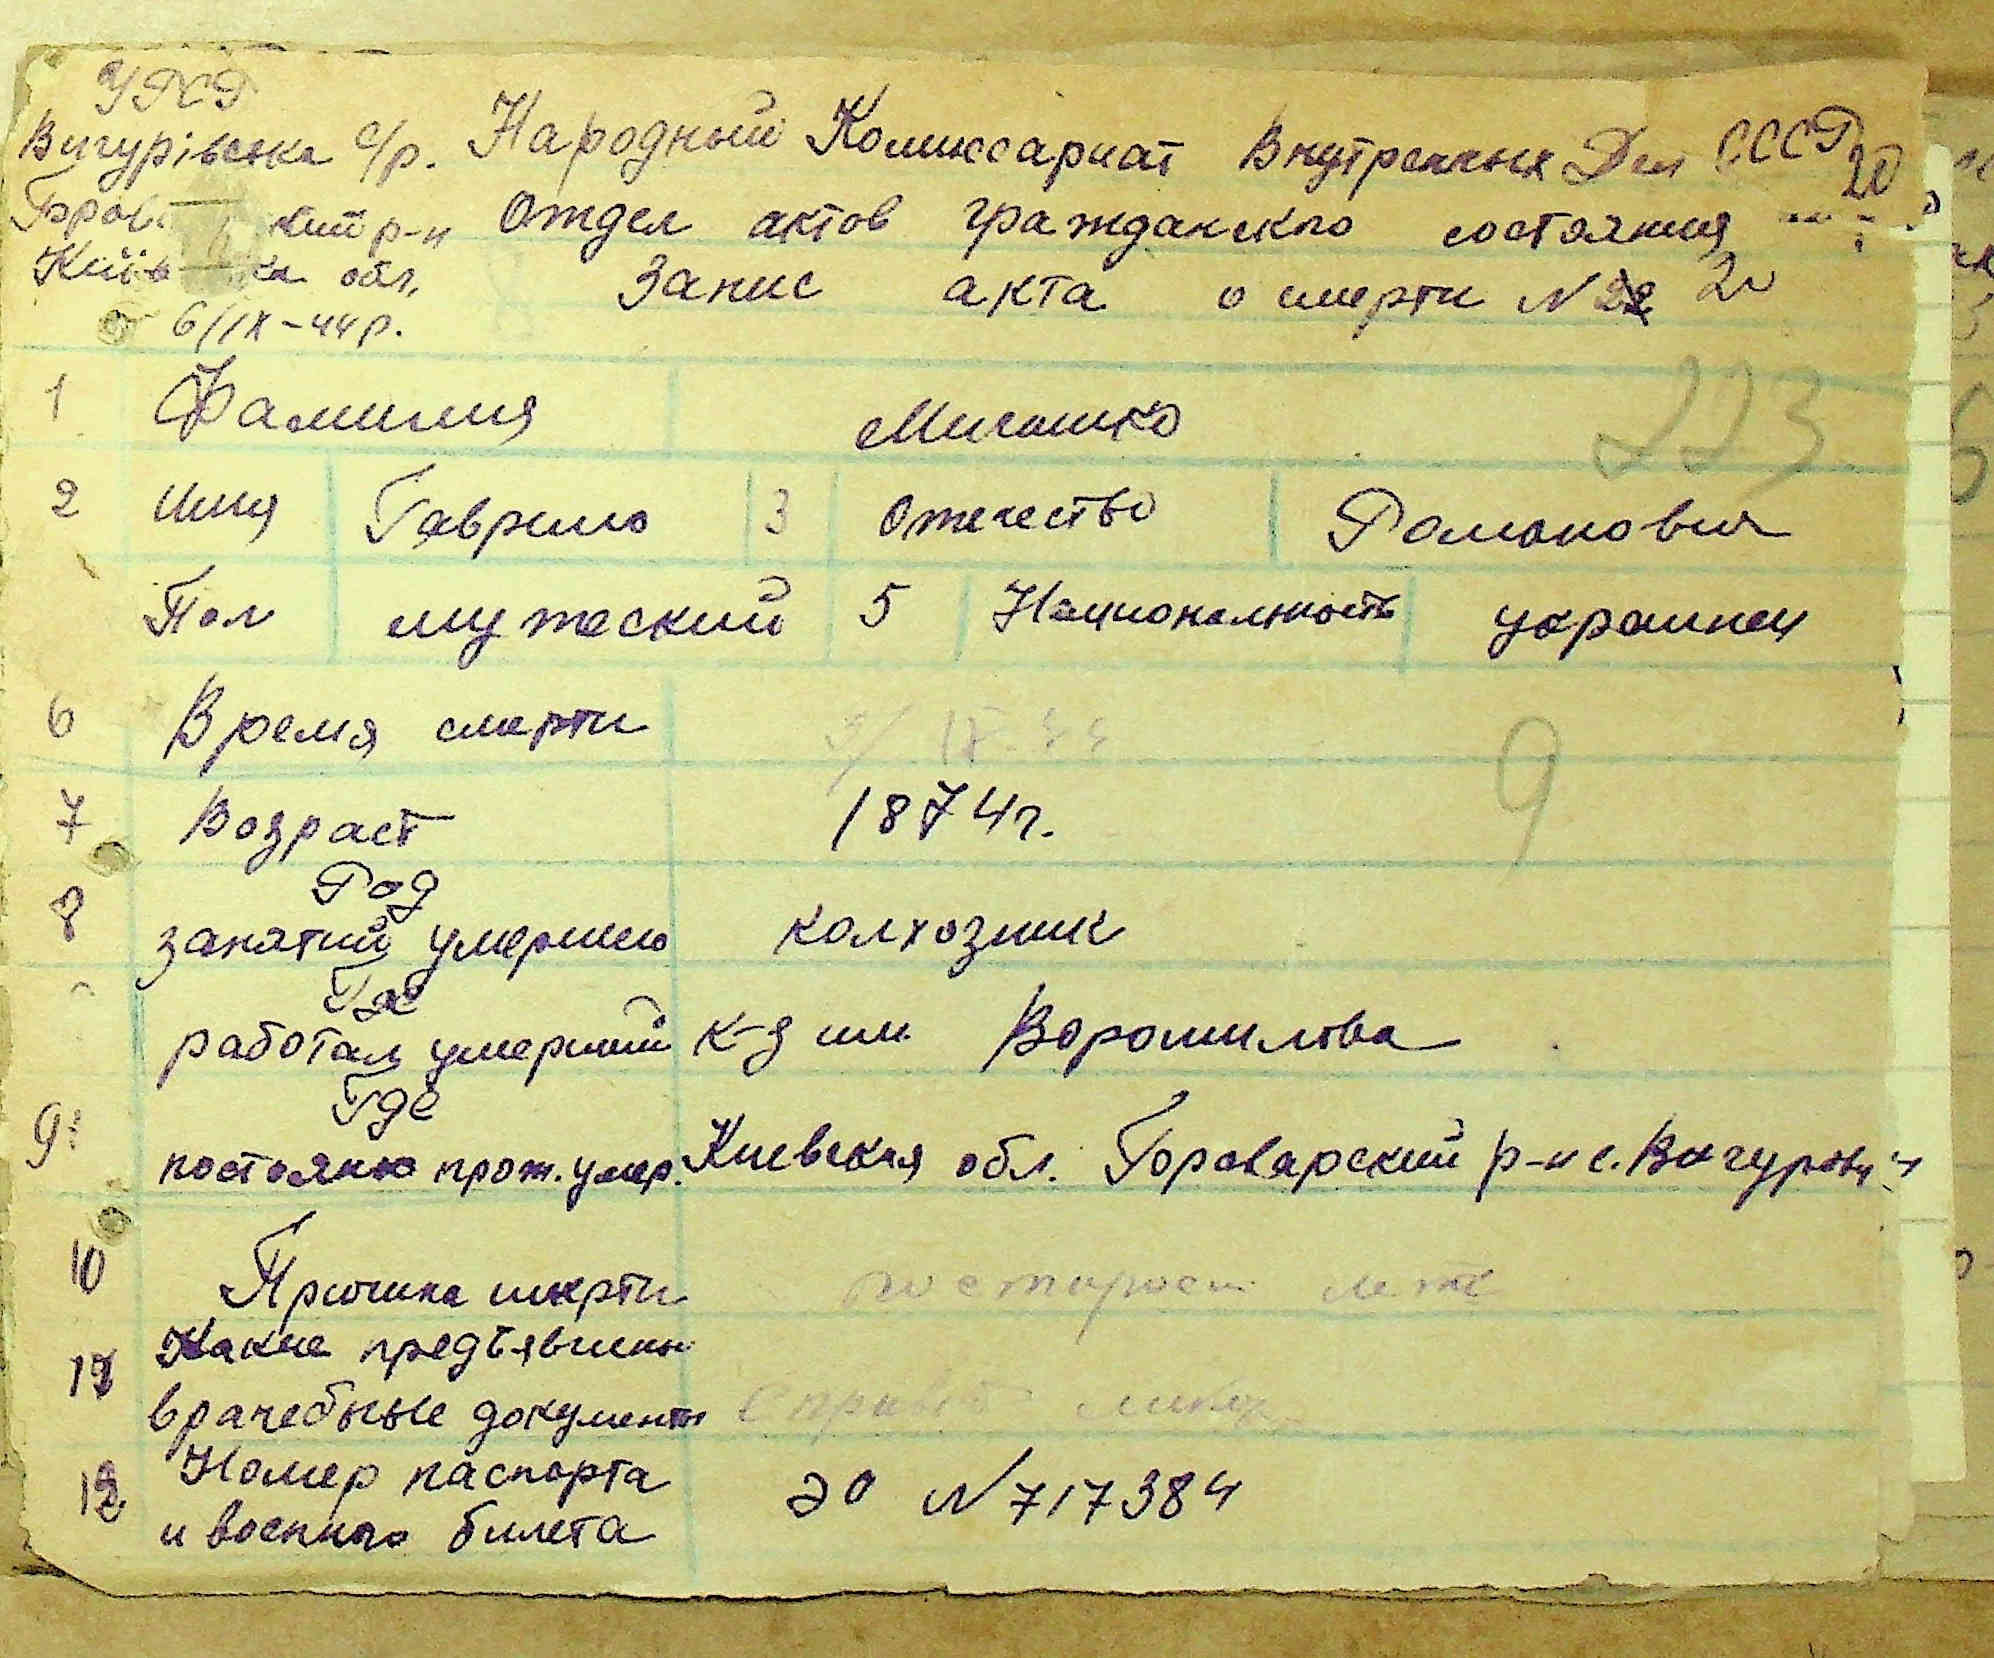 УРСР
Вигурівська с/р. Народный Комиссариат Внутренных Дел СССР
20
р-н Отдел актов гражданского состояния
обл. Запис акта о смерти N 22 20
6/IX-44р.
1 Фамилия
223
2 Имя Гаврило 3 Отечество Романович
Пол мужеский 5 Национальность украинец
6 Время смерти IX-44
9
7 Возраст 1874г.
8 Род
занятий умершего колхозник
Где
работал умерший к-з им. Ворошилова
9 Где
постоянно прож. умер. Киевская обл. Броварский р-н с.
10 Причина смерти по старости лет
11 Какие предъявлены
врачебные документы
12 Номер паспорта
и военного билета ЭО N 717384